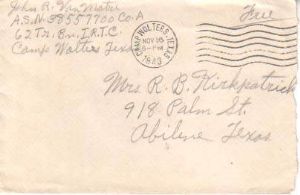 John R. Van Matre
A.S.N. 38557700 Co. A
62 Tn. Bn. I.R.T.C.
Camp Wolters Texas
CAMP WOLTERS, TEXAS
NOV 16
6-PM
1943
Free
Mrs. R. B. Kirkpatrick
918 Palm St.
Abilene Texas